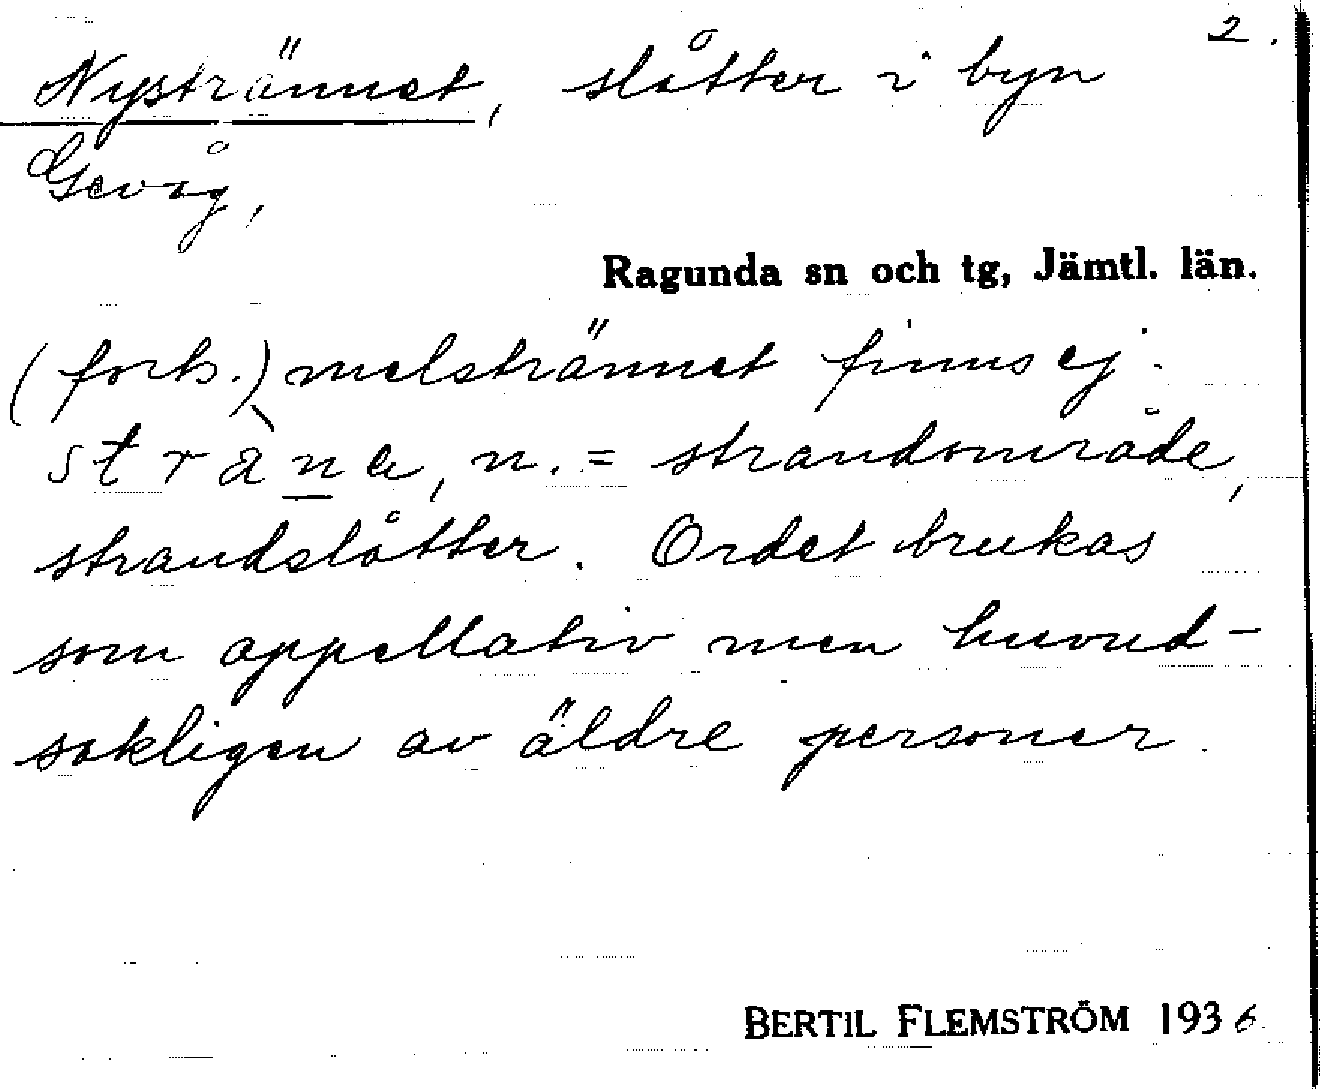 2.
Nystrännet, slåtter i byn
Gevåg,
Ragunda sn och tg, Jämtl. län.
(forts.) melstrännet finns ej.
stràne, n. = strandområde,
strandslåtter. Ordet brukas
som appellativ men huvud-
sakligen av äldre personer.
BERTIL FLEMSTRÖM 1936